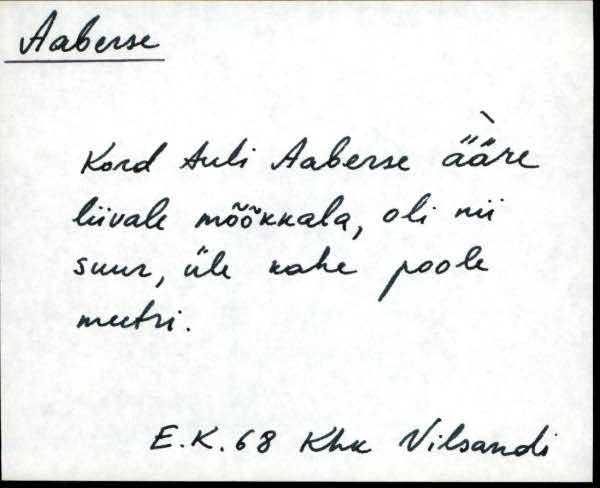 Aaberse
Kord tuli Aaberse ˋääre
liivale mõõkkala, oli nii
suur, üle kahe poole
meetri.
E.K. 68 Khk Vilsandi